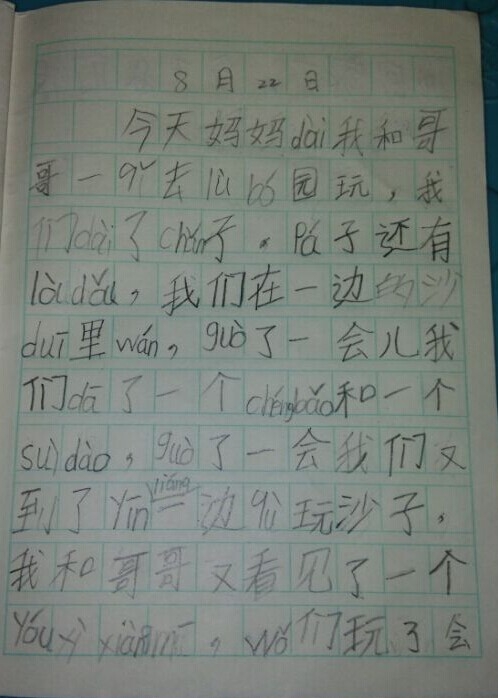 8月22日
今天妈妈dài我和哥
哥一qǐ去lù bó园玩，我
们dài了chǎn子。Pá子还有
là dǎu，我们在一边的沙
duī里wán，guò了一会儿我
们dā了一个chéngbǎo和一个
suì dào，guò了一会我们又
到了yīn liáng一边qù玩沙子，
我和哥哥又看见了一个
yóu yì xiàng mù，wǒ们玩了会